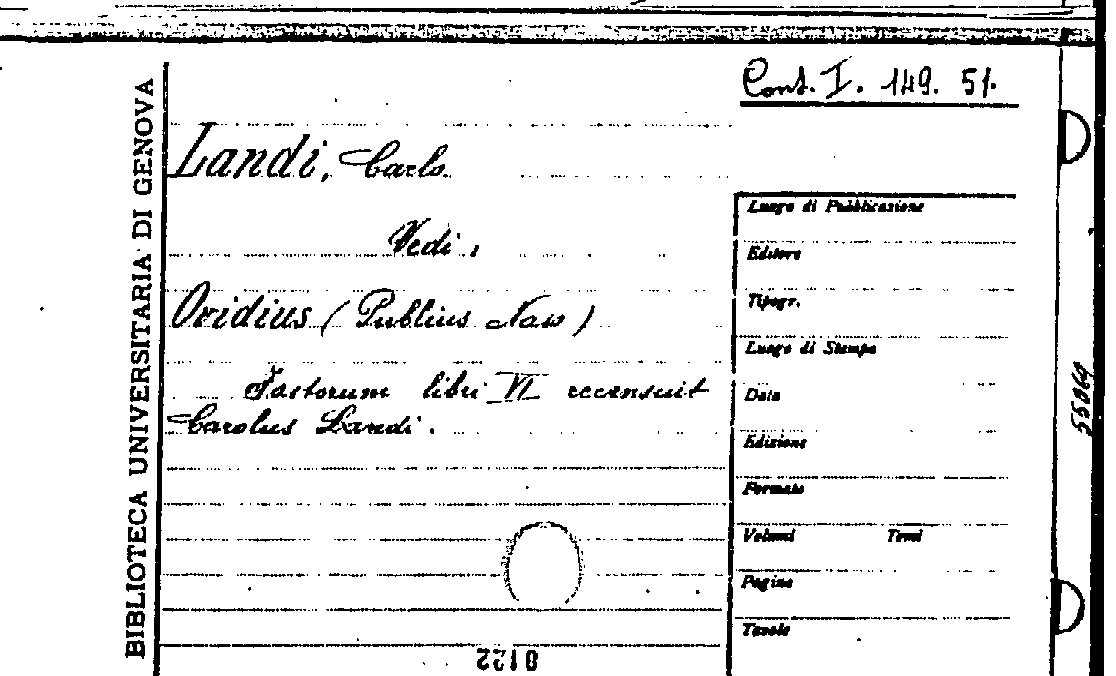 Cons. I. 149. 51.
BIBLIOTECA UNIVERSITARIA DI GENOVA
Landi, Carlo.
Vedi,
Ovidius (Publius Naso)
Fastorum libri VI recensuit
Carolus Landi.
Luogo di Pubblicazione
Editore
Tipogr.
Luogo di Stampa
Data
Edizione
Formato
Volumi Tomi
Pagine
Tavole
55069
0122